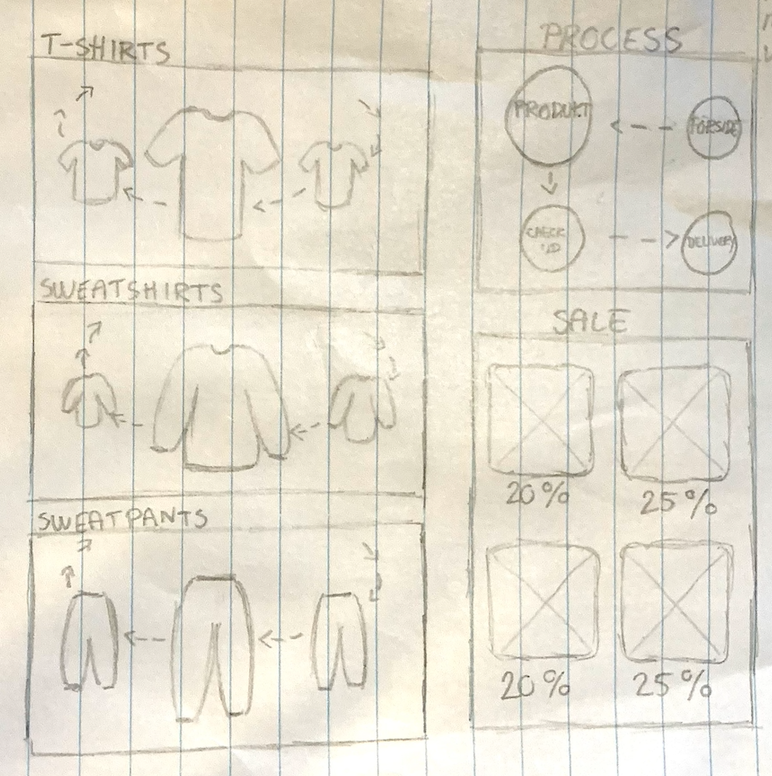 T-SHIRTS
SWEATSHIRTS
SWEATPANTS
PROCESS
PRODUKT
FORSIDE
CHECK
DELIVERY
SALE
20%
25%
20%
25%